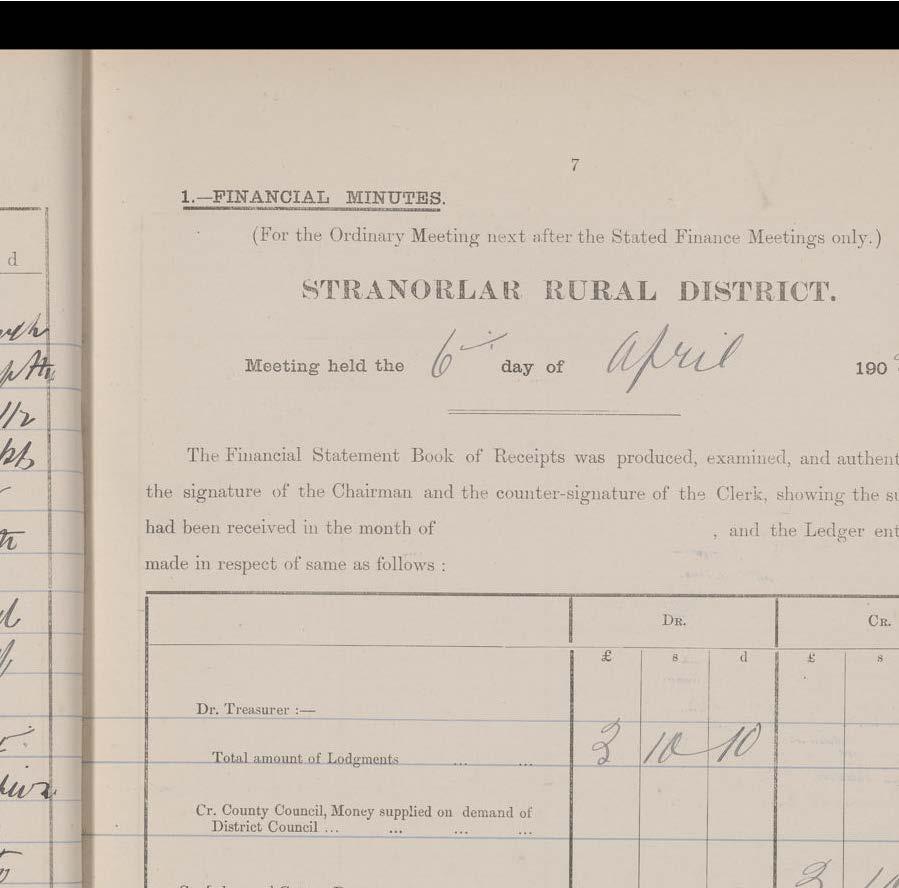 7
1.—FINANCIAL MINUTES.
(For the Ordinary Meeting next after the Stated Finance Meetings only.)
STRANORLAR RURAL DISTRICT.
Meeting held the 6th day of April 190
The Financial Statement Book of Receipts was produced, examined, and authent
the signature of the Chairman and the counter-signature of the Clerk, showing the su
had been received in the month of , and the Ledger ent
made in respect of same as follows :
DR. CR.
£ s d £ s
d
Dr. Treasurer :—
Total amount of Lodgments ... ... 3 10 10
Cr. County Council, Money supplied on demand of
District Council ... ... ... ...